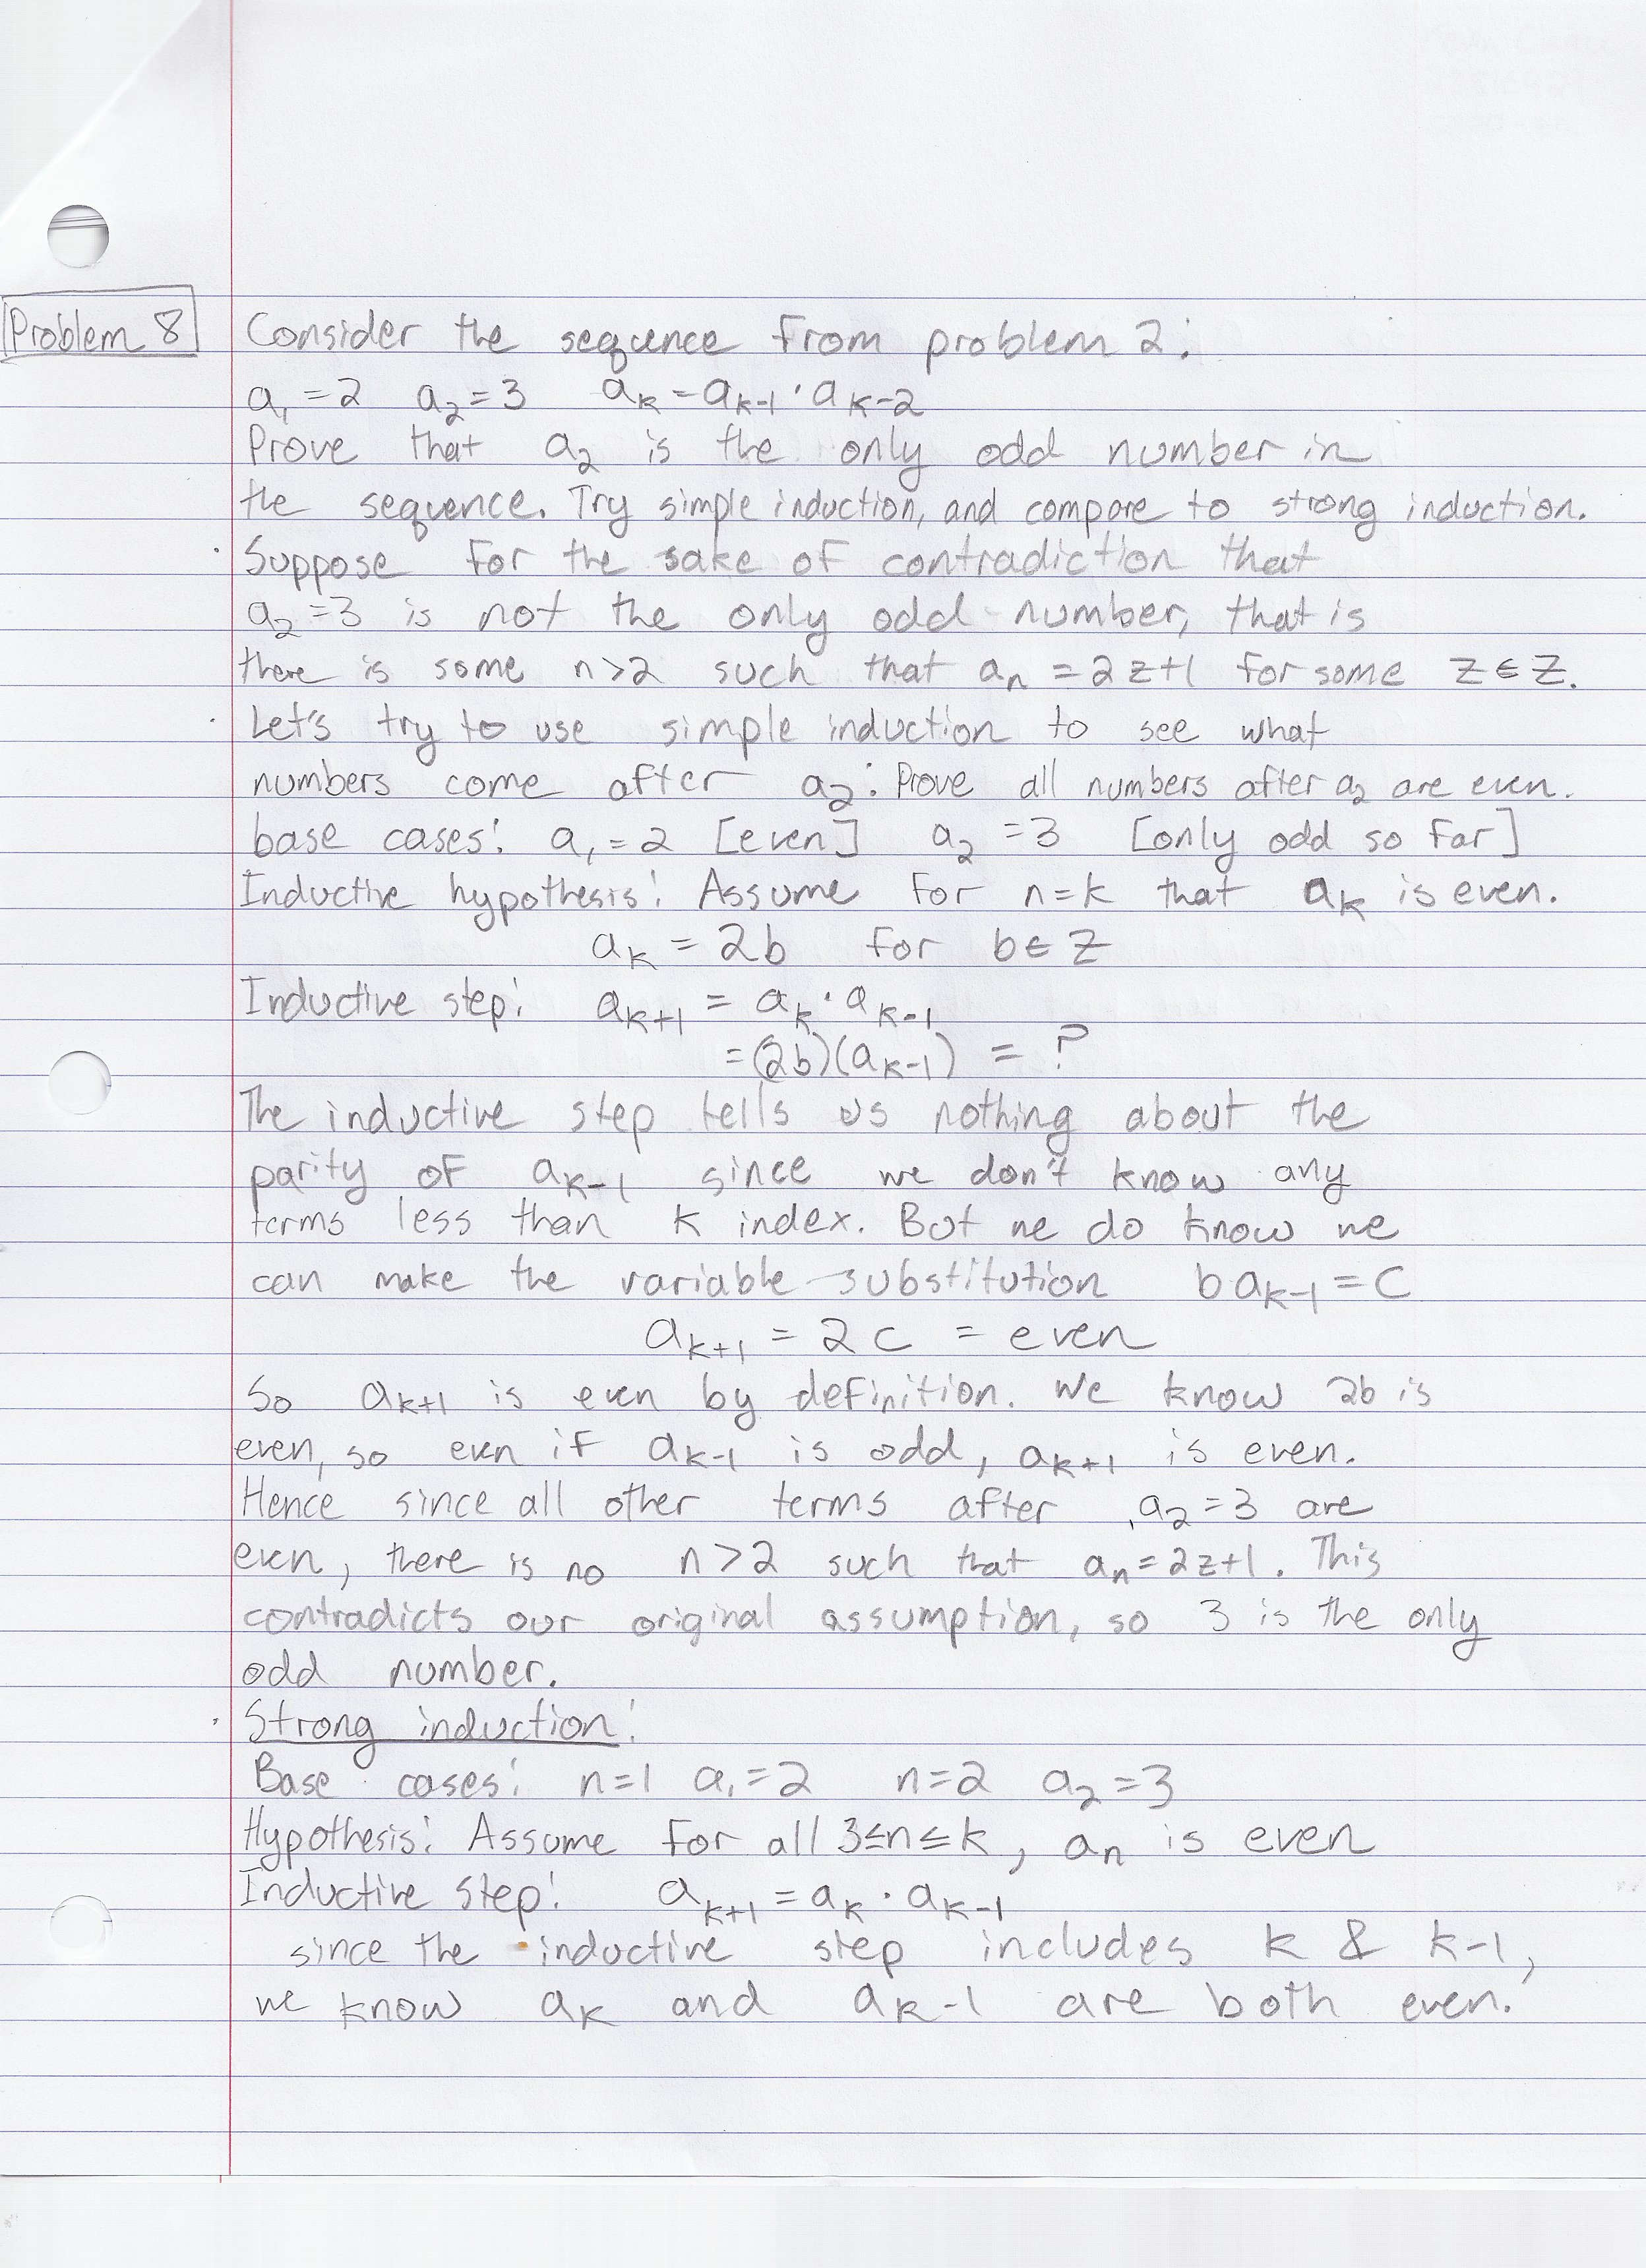 Problem 8
Consider the sequence from problem 2:
a₁ = 2 a₂ = 3 aₖ = aₖ₋₁ · aₖ₋₂
Prove that a₂ is the only odd number in
the sequence. Try simple induction, and compare to strong induction.
· Suppose for the sake of contradiction that
a₂ = 3 is not the only odd number, that is
there is some n>2 such that aₙ = 2z+1 for some z ∈ Z.
· Let's try to use simple induction to see what
numbers come after a₂: Prove all numbers after a₂ are even.
base cases: a₁ = 2 [even] a₂ = 3 [only odd so far]
Inductive hypothesis: Assume for n=k that aₖ is even.
aₖ = 2b for b ∈ Z
Inductive step: aₖ₊₁ = aₖ · aₖ₋₁
= (2b)(aₖ₋₁) = ?
The inductive step tells us nothing about the
parity of aₖ₋₁ since we don't know any
terms less than k index. But we do know we
can make the variable substitution baₖ₋₁ = c
aₖ₊₁ = 2c = even
So aₖ₊₁ is even by definition. We know 2b is
even, so even if aₖ₋₁ is odd, aₖ₊₁ is even.
Hence since all other terms after a₂ = 3 are
even, there is no n>2 such that aₙ = 2z+1. This
contradicts our original assumption, so 3 is the only
odd number.
· Strong induction:
Base cases: n=1 a₁=2 n=2 a₂=3
Hypothesis: Assume for all 3≤n≤k, aₙ is even
Inductive step: aₖ₊₁ = aₖ · aₖ₋₁
since the inductive step includes k & k-1,
we know aₖ and aₖ₋₁ are both even.